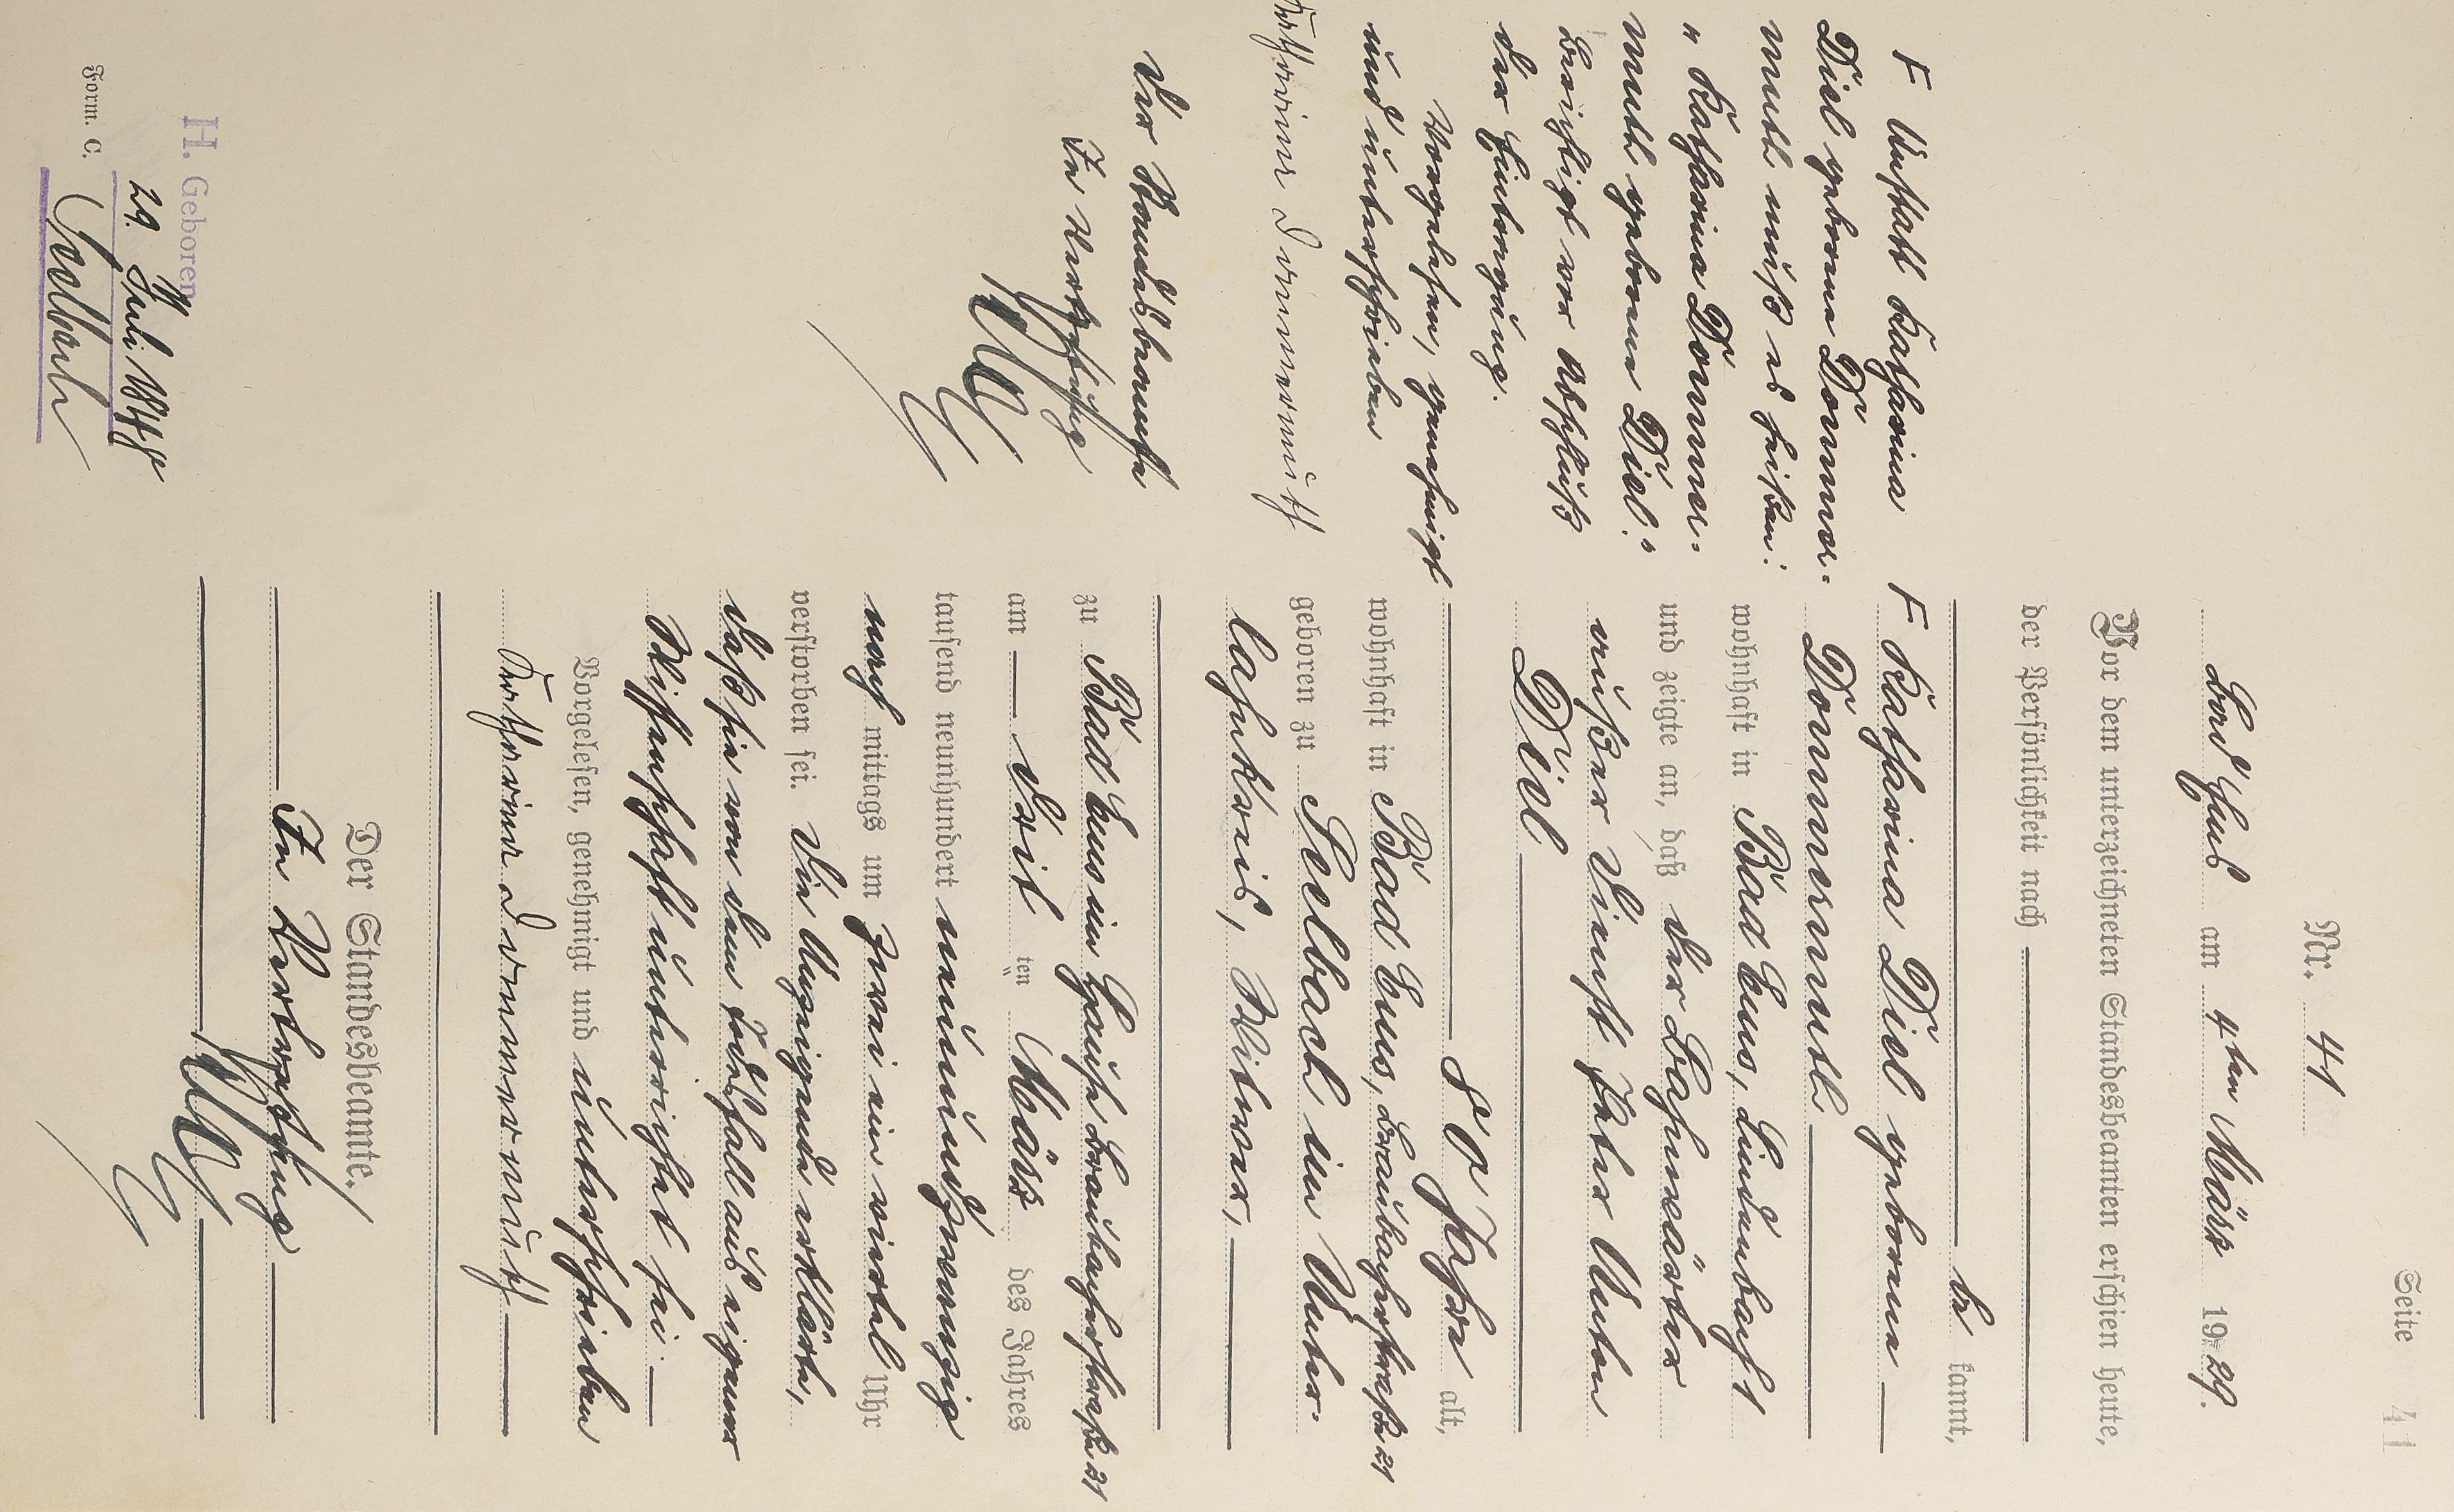 Seite 41
Nr. 41
Bad Ems am 4ten März 1929.
Vor dem unterzeichneten Standesbeamten erschien heute,
der Persönlichkeit nach
be kannt,
F Katharina Diel geborene
Dommermuth
wohnhaft in Bad Ems, Lindenbach 1
und zeigte an, daß der Bahnwärter
außer Dienst Peter Anton
Diel
80 Jahre alt,
wohnhaft in Bad Ems, Braubacherstraße 21
geboren zu Seelbach im Unter-
lahnkreis, Witwer,
zu Bad Ems im Hause Braubacherstraße 21
am drit ten März des Jahres
tausend neunhundert neunundzwanzig
nach mittags um zwei ein viertel Uhr
verstorben sei. Die Anzeigende erklärte,
daß sie von dem Todesfall aus eigener
Wissenschaft unterrichtet sei.
Vorgelesen, genehmigt und unterschrieben
Katharina Dommermuth
Der Standesbeamte.
In Vertretung
F Anstatt Katharina
Diel geborene Dommer-
muth muß es heißen:
"Katharina Dommer-
muth geborene Diel."
Berichtigt vor Abschluß
der Eintragung.
Vorgelesen, genehmigt
und unterschrieben
Katharina Dommermuth
Der Standesbeamte
In Vertretung
H. Geboren
29. Juli 1849
Seelbach
Form. C.